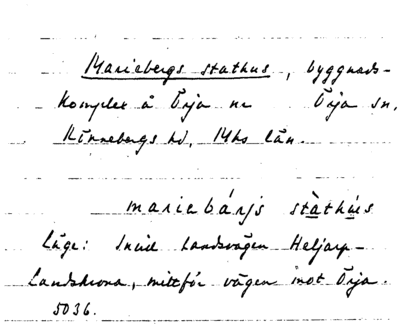 Mariebergs stathus, byggnads-
komplex å Örja nr Örja sn,
Rönnebergs hd, Mhs län.
mariebárjs stàthús
Läge: Invid landsvägen Heljarp-
Landskrona, mittför vägen mot Örja.
5036.